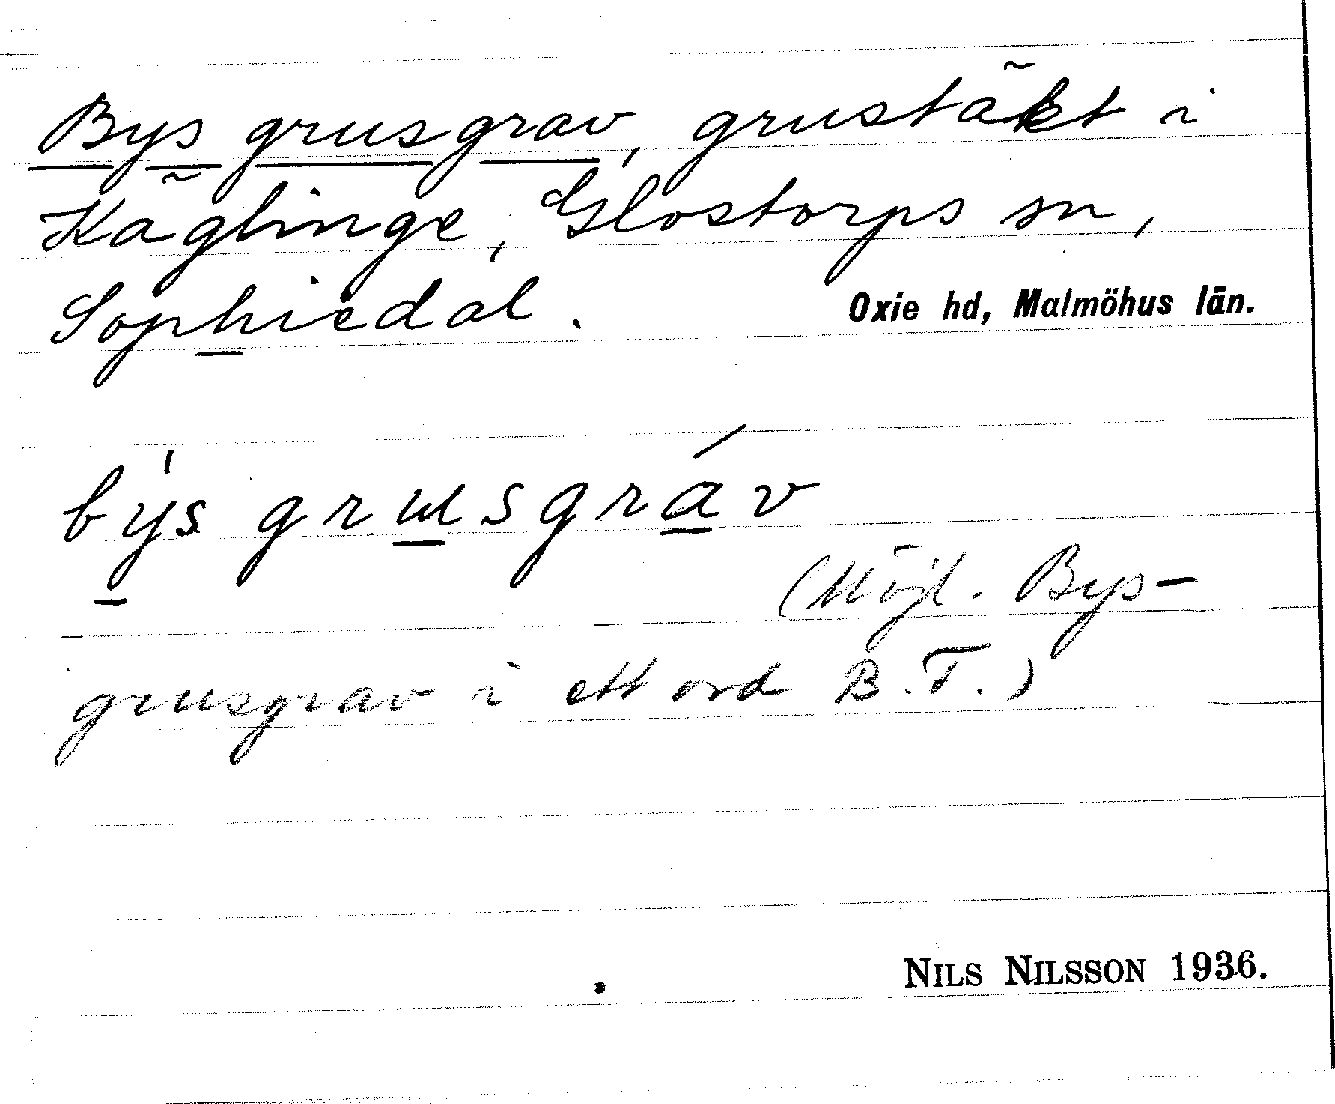 Bys grusgrav, grustäkt i
Käglinge, Glostorps sn,
Sophiedal. Oxie hd, Malmöhus län.
býs grusgráv
(Möjl. Bys-
grusgrav i ett ord B.T.)
NILS NILSSON 1936.